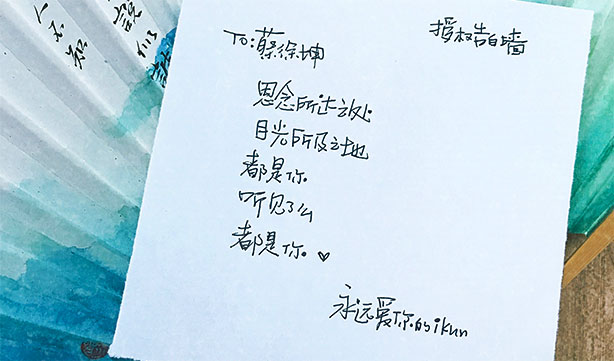 To:蔡徐坤
授权告白墙
思念所达之处
目光所及之地
都是你.
听见了么
都是你.♡
永远爱你的ikun
人不知
說